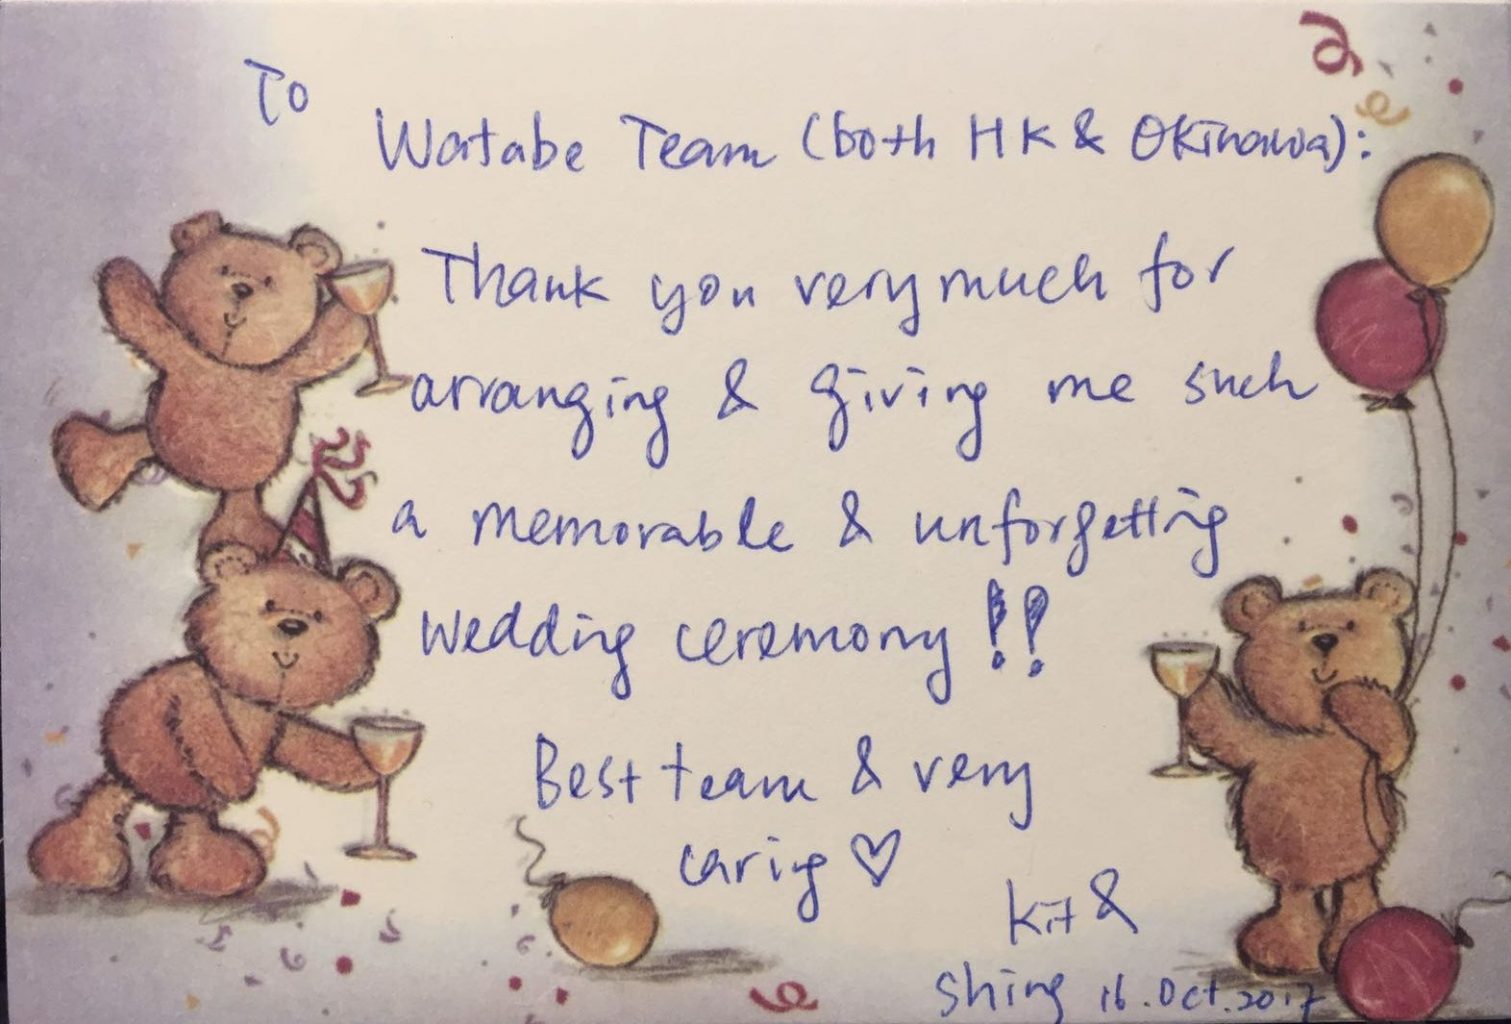 To
Watabe Team (both HK & Okinawa):
Thank you very much for
arranging & giving me such
a memorable & unforgetting
wedding ceremony!!
Best team & very
caring ♡
Kit &
Shing 16.Oct.2017